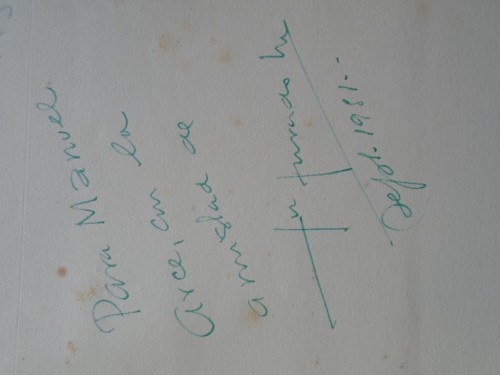 Para Manuel
Arce, con la
amistad de
Sept. 1981..